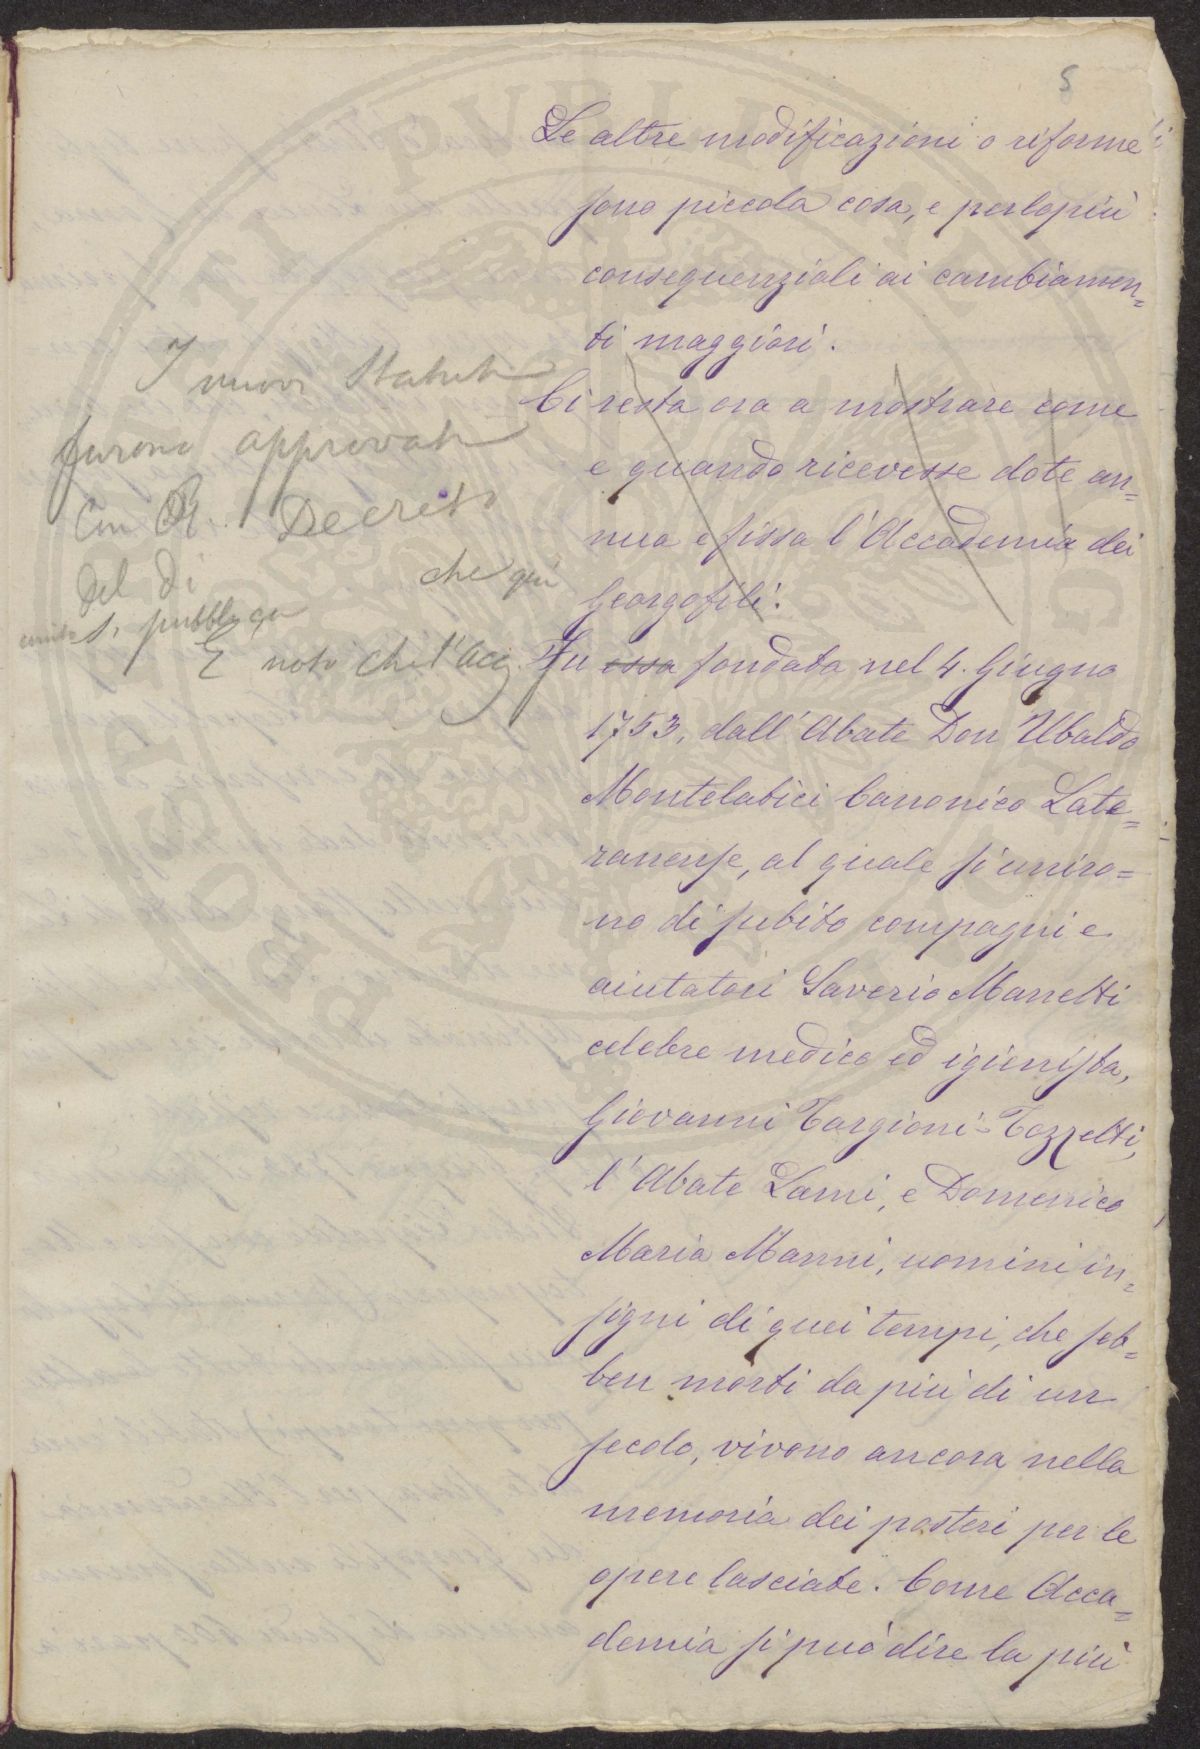 5
Le altre modificazioni o riforme
sono piccola cosa, e perlopiù
consequenziali ai cambiamen=
ti maggiori.
Ci resta ora a mostrare come
e quando ricevesse dote an=
nua e fissa l'Accademia dei
Georgofili.
I nuovi Statuti
furono approvati
con R. Decreto
del di che qui
s. pubblica
E noto che l'Acc.
Fu essa fondata nel 4. Giugno
1753, dall'Abate Don Ubaldo
Montelatici Canonico Late=
ranense, al quale si uniro=
no di subito compagni e
aiutatori Saverio Manetti
celebre medico ed igienista,
Giovanni Targioni-Tozzetti,
l'Abate Lami, e Domenico
Maria Manni, uomini in=
signi di quei tempi, che seb=
ben morti da più di un
secolo, vivono ancora nella
memoria dei posteri per le
opere lasciate. Come Acca=
demia si può dire la più